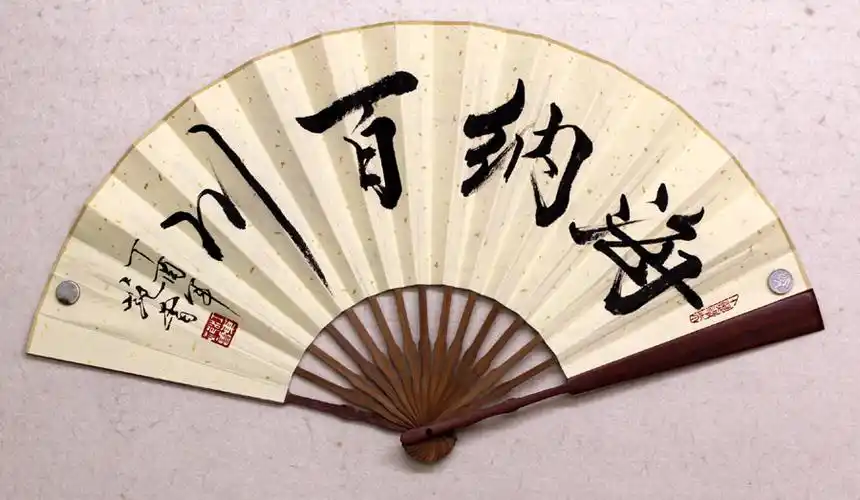 海纳百川
丁酉年